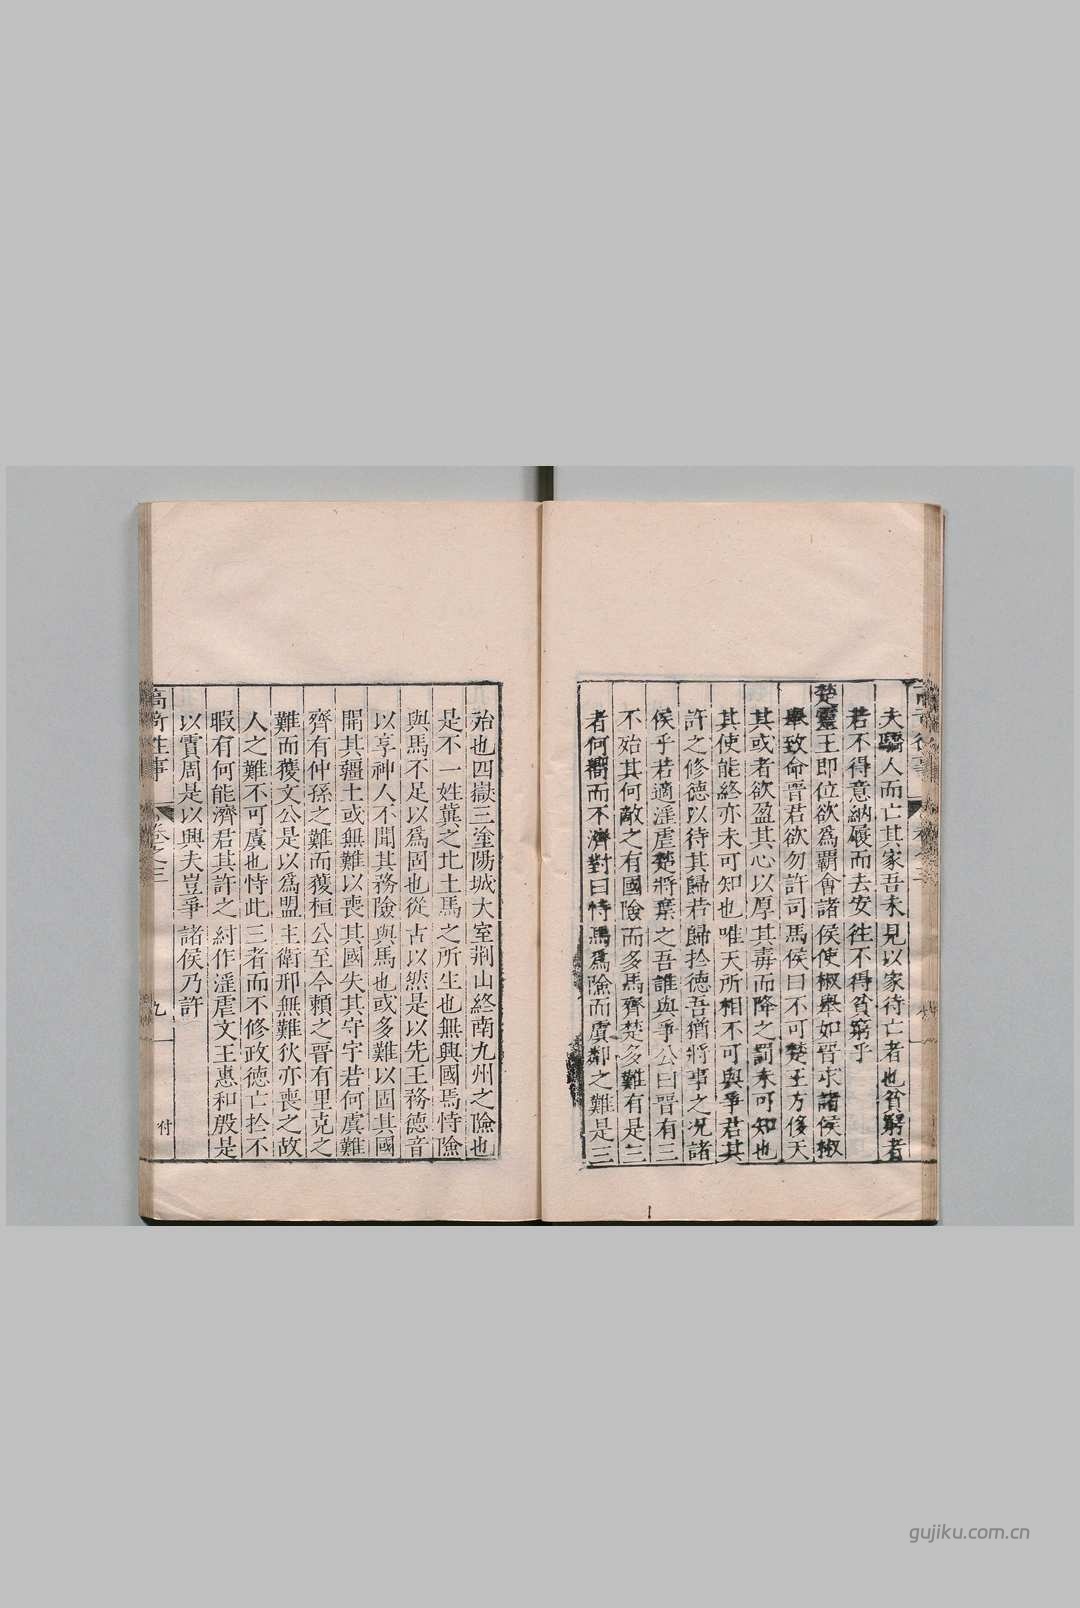 夫驕人而亡其家吾未見以家待亡者也貧窮者
若不得意納履而去安往不得貧窮乎
楚靈王即位欲爲霸會諸侯使椒舉如晉求諸侯椒
舉致命晉君欲勿許司馬侯曰不可楚王方侈天
其或者欲盈其心以厚其毒而降之罰未可知也
其使能終亦未可知也唯天所相不可與爭君其
許之修德以待其歸若歸扵德吾猶將事之况諸
侯乎若適淫虐楚將棄之吾誰與爭公曰晉有三
不殆其何敵之有國險而多馬齊楚多難有是三
者何嚮而不濟對曰恃馬爲險而虞鄰之難是三
殆也四嶽三塗陽城大室荆山終南九州之險也
是不一姓冀之北土馬之所生也無興國焉恃險
與馬不足以爲固也從古以然是以先王務德音
以享神人不聞其務險與馬也或多難以固其國
開其疆土或無難以喪其國失其守宇若何虞難
齊有仲孫之難而獲桓公至今頼之晉有里克之
難而獲文公是以爲盟主衛邢無難狄亦喪之故
人之難不可虞也恃此三者而不修政德亡扵不
暇有何能濟君其許之紂作淫虐文王惠和殷是
以霣周是以興夫豈爭諸侯乃許
卷之三
九
付
gujiku.com.cn